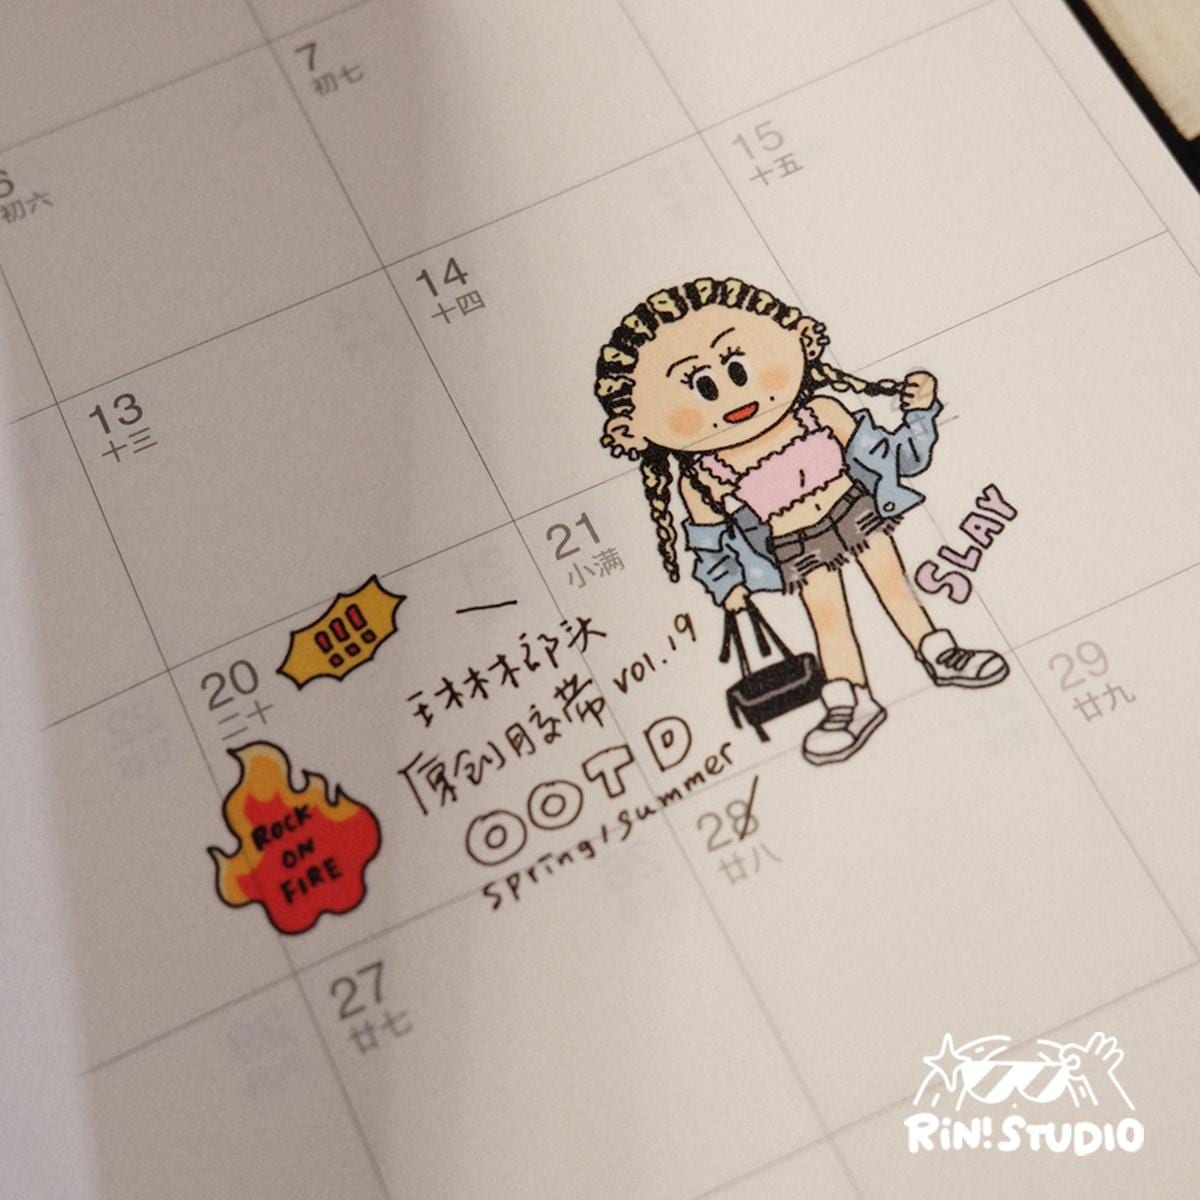 7
初七
6
初六
15
十五
14
十四
13
十三
21
小满
SLAY
!!!
20
二十
一
王林林木部头
原创胶带 vol.19
OOTD
spring/summer
ROCK
ON
FIRE
29
廿九
28
廿八
27
廿七
RiN! STUDIO